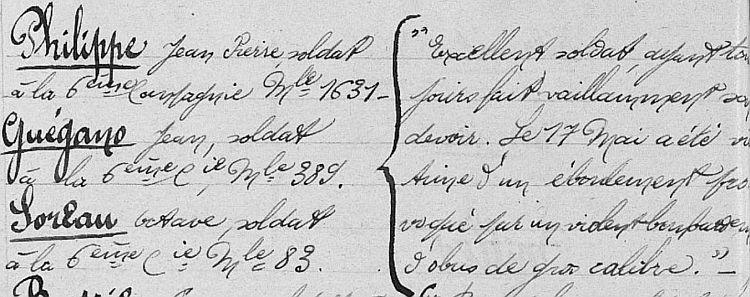 Philippe Jean Pierre soldat
à la 6ème Compagnie Mle 1631 -
Guégano Jean, soldat
à la 6ème Cie, Mle 389.
Soreau octave, soldat
à la 6ème Cie Mle 83.
"Excellent soldat, ayant tou
jours fait vaillamment so
devoir. Le 17 Mai a été vi
time d'un ébordement pro
voqué par un violent
d'obus de gros calibre." -